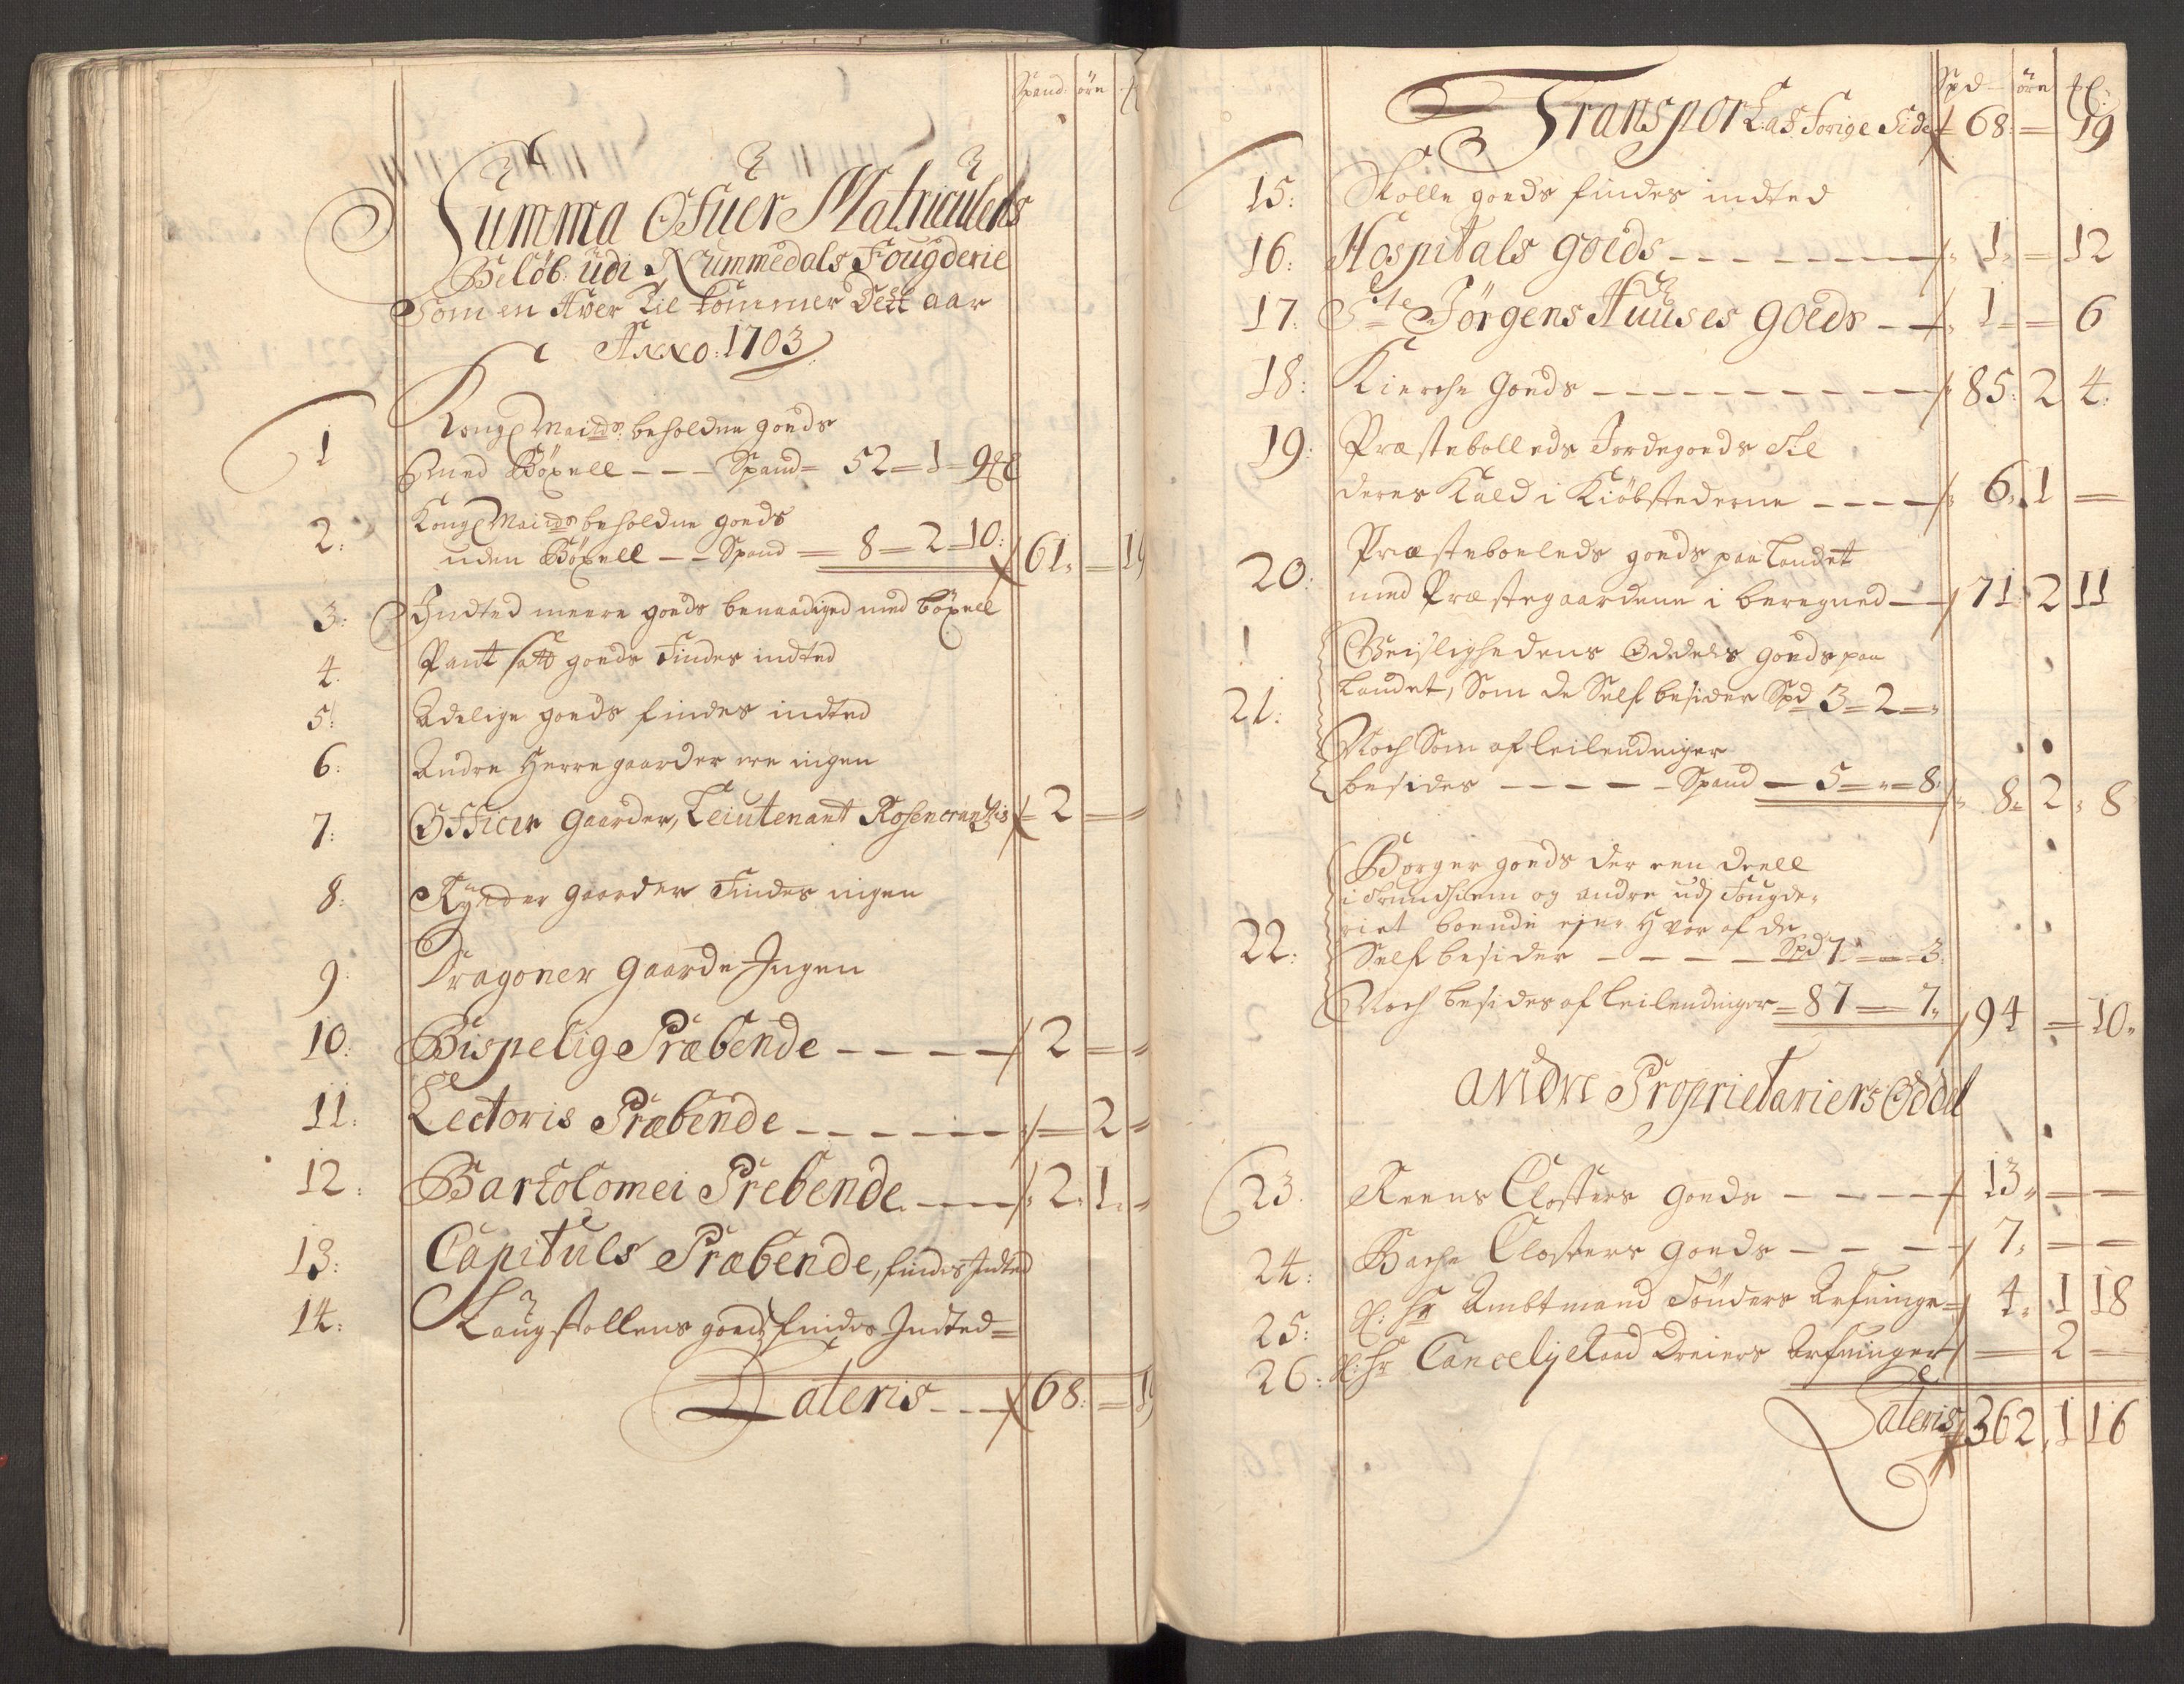 Spand öre
Summa Ofuer Matriculens
Beløb udi Nummedals Fougderie
Som en Hver Til kommer Dett aar
Anno: 1703
1 Kongl Maitds beholdne goeds
med Böxell - - - Spand = 52 = 1 = 9
2: Kongl Maitds beholdne goeds
uden Böxell - - Spand = 8 = 2 = 10: 61: = 19
3: Indted meere goeds benaadiged med böxell
4. Pant satt goeds Findes indted
5: Adelige goeds findes indted
6: Andre Herregaarder ere ingen
7: Officer gaarder, Leiutenant Rosencrantzis 2 = =
8: Rytter gaarder Findes ingen
9. Dragoner gaarde Ingen
10: Bispelig Præbende - - - - 2 = =
11: Lectoris Præbende - - - - - - = 2 =
12: Bartolomei Prebende - - - 2: 1: =
13: Capituls Præbende, findes Indted
14: Laugstollens goeds findes Indted =
Lateris - - - 68: = 19
Spd öre
Transport af Forige Side 68: = 19
15: Skolle goeds findes indted
16: Hospitals goeds - - - - - - - 1: = 12
17: Ste Jörgens Huuses goeds - - 1 = = 6
18: Kierche goeds - - - - - - - - - 85: 2 4:
19: Præstebolleds Jordegoeds til
deres Kald i Kiöbstederne - - - - 6: 1 =
20: Præsteboeleds goeds paa Landet
med Præstegaardene i beregned - - 71: 2 11
21: Geislighedens Oddels goeds paa
Landet, Som de Self besider Spd 3 = 2 =
Noch Som af leilendinger
besides - - - - - Spand - 5 = " = 8: 8: 2: 8
22: Borger goeds der een deell
i Trundhiem og andre udj Fougde-
riet boende ejer Hvor af de
Self besider - - - - - Spd 7 = = 3:
Noch besides af leilendinger = 87 = 7: 94 = 10:
Andre Proprietariers Oddel
23. Reens Closters goeds - - - - 13: = =
24: Bache Closters goeds - - - 7: = =
25: Sl: Hr Ambtmand Tönders Arfuinger = 4: 1 18
26: Sl: Hr Cancelij Raad Dreiers Arfuinger = 2 =
Lateris 362, 1 16